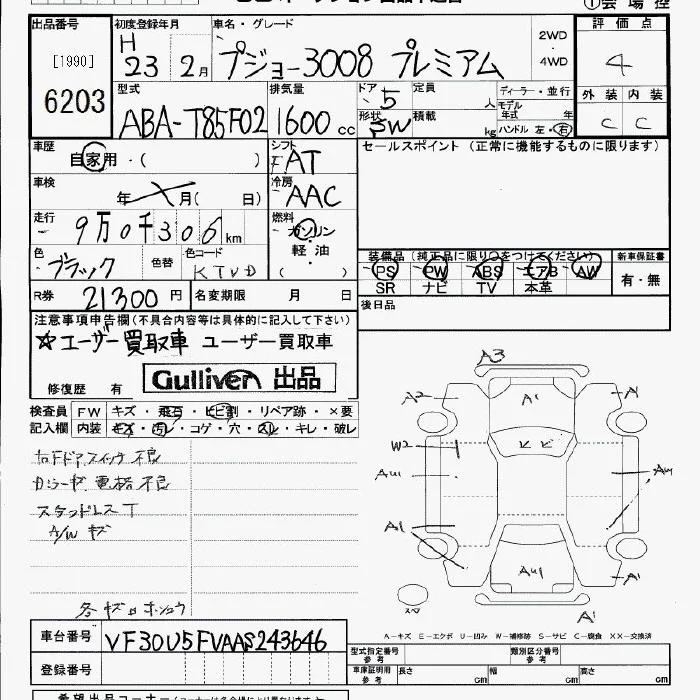 ①会場控
出品番号 初度登録年月 車名・グレード 評価点
[1990] H 23 2月 プジョー3008 プレミアム 2WD・4WD 4
6203
型式 排気量 ドア 定員 ディーラー・並行 外装 内装
ABA-T85F02 1600cc 5 人 モデル年式 年 C C
形状 SW 積載 kg ハンドル 左・右
車歴 自家用・( ) シフト FAT セールスポイント (正常に機能するものに限ります)
車検 年 月( 日) 冷房 AAC
走行 9万0千306km 燃料 ガソリン 軽油 ( )
色 ブラック 色替 色コード KTVD
装備品 (純正品に限り○をつけてください) 新車保証書
PS PW ABS エアB AW 有・無
SR ナビ TV 本革
R券 21300円 名変期限 月 日 後日品
注意事項申告欄(不具合内容等は具体的に記入して下さい)
☆ユーザー買取車 ユーザー買取車
修復歴 有 Gulliver 出品
検査員 FW キズ・飛石・ヒビ割・リペア跡・×要
記入欄 内装 キズ・汚レ・コゲ・穴・スレ・キレ・破レ
右Fドアスイッチ不良
不良
スタッドレスT
A/W キズ
A3
A2 A1 A1
W2 ヒビ
A1
AW1
A1
A1
A-キズ E-エクボ U-凹み W-補修跡 S-サビ C-腐食 XX-交換済
車台番号 VF30U5FVAAS243646
型式指定番号 参考 類別区分番号 参考
登録番号 車庫証明用 参考 長さ cm 幅 cm 高さ cm
希望出品コーナー